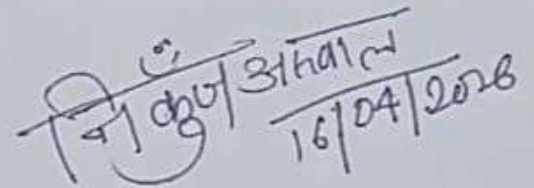 निकुंज अग्रवाल
16/04/2026